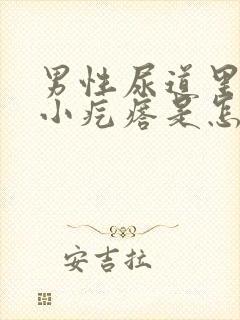 男性尿道里
小疙瘩是怎
安吉拉